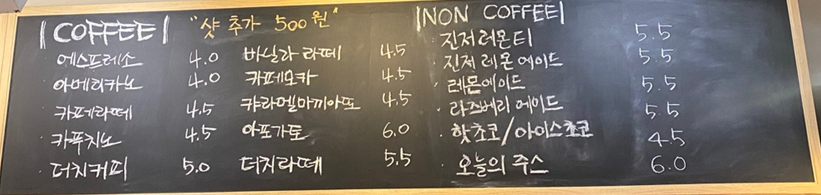 COFFEE
"샷 추가 500원"
에스프레소 4.0
아메리카노 4.0
카페라떼 4.5
카푸치노 4.5
더치커피 5.0
바닐라 라떼 4.5
카페모카 4.5
캬라멜마끼아또 4.5
아포가토 6.0
더치라떼 5.5
NON COFFEE
· 진저레몬티 5.5
· 진저 레몬 에이드 5.5
· 레몬에이드 5.5
· 라즈베리 에이드 5.5
· 핫초코/아이스초코 4.5
· 오늘의 주스 6.0